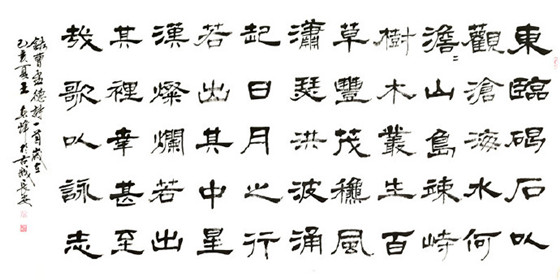 東臨碣石以
觀滄海水何
澹〻山島竦峙
樹木叢生百
草豐茂穐風
瀟瑟洪波涌
起日月之行
若出其中星
漢燦爛若出
其裡幸甚至
哉歌以詠志
錄曹孟德詩一首歲在
己亥夏王於古城長安